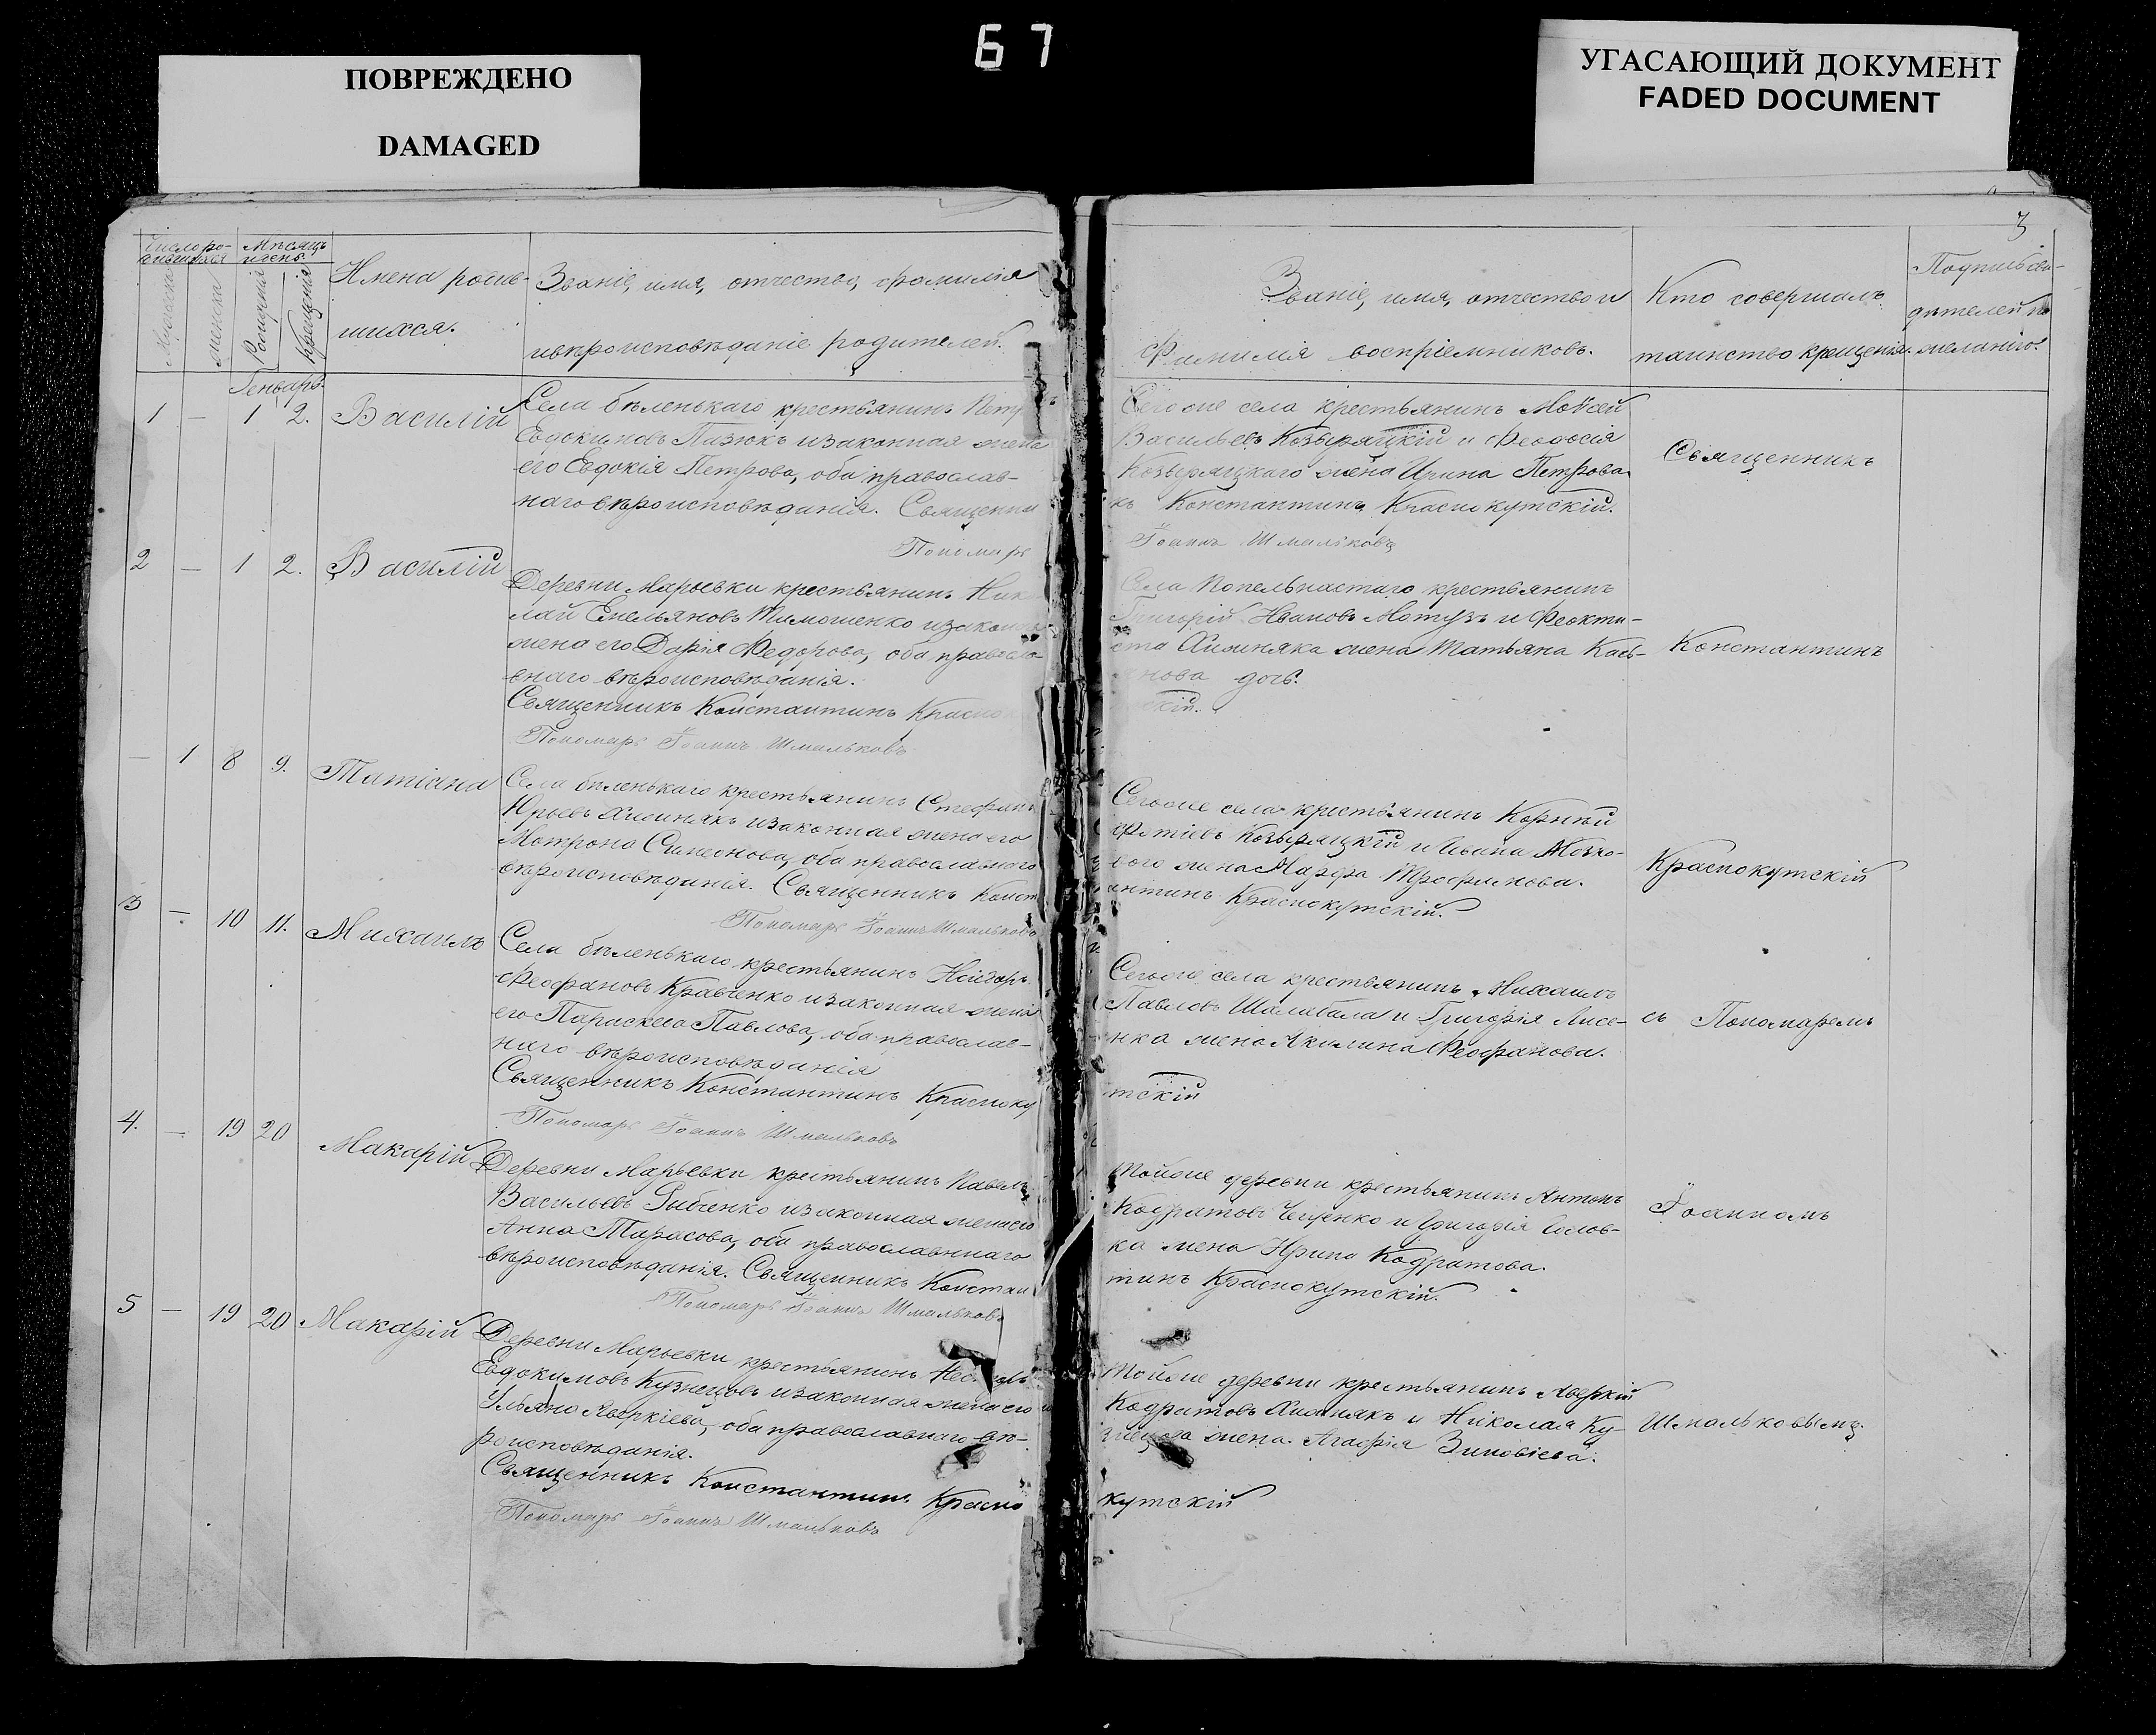 67
ПОВРЕЖДЕНО
DAMAGED
УГАСАЮЩИЙ ДОКУМЕНТ
FADED DOCUMENT
3
Число ро-
Мѣсяцъ
и день
Мужеска
женска
Рожденія
Крещенія
Имена родив-
шихся.
Званіе, имя, отчество, фамилія
и вѣроисповѣданіе родителей.
Званіе, имя, отчество и
Фамилія воспріемниковъ.
Кто совершалъ
таинство крещенія.
Подпись сви-
дѣтелей по
желанію.
Генварь.
1 — 1 2. Василій
Села бѣленькаго крестьянинъ Петр
Евдокимовъ Пазюкъ и законная жена
его Евдокія Петрова, оба православ-
наго вѣроисповѣданія. Священни
Пономарь
Сегоже села крестьянинъ Моѵсей
Васильевъ Козыряцкій и Феодосія
Козыряцкаго жена Ирина Петрова
къ Константинъ Краснокутскій.
Іоаннъ Шмальковъ
Священникъ
2 — 1 2. Василій
Деревни Марьевки крестьянинъ Ник
лай Емельяновъ Тимошенко и законна
жена его Дарія Федорова, оба правосла-
внаго вѣроисповѣданія.
Священникъ Константинъ Красно
Пономарь Іоаннъ Шмальковъ
Села Попельнастаго крестьянинъ
Григорій Ивановъ Мотузъ и Феокти-
ста жена Татьяна Кась-
янова дочь.
скій.
Константинъ
— 1 8 9. Татіана
Села бѣленькаго крестьянинъ Стефанъ
Юрьевъ и законная жена его
Мотрона Симеонова, оба православнаго
вѣроисповѣданія. Священникъ Конст
Пономарь Іоаннъ Шмальковъ
Сегоже села крестьянинъ Корнѣй
Фотіевъ Козыряцкій и
жена Марфа Трофимова.
антинъ Краснокутскій.
Краснокутскій
3 — 10 11. Михаилъ
Села бѣленькаго крестьянинъ Исидоръ
Феофановъ Кравченко и законная жена
его Параскева Павлова, оба православ-
наго вѣроисповѣданія
Священникъ Константинъ Красноку
Пономарь Іоаннъ Шмальковъ
Сегоже села крестьянинъ Михаилъ
Павловъ Шалабала и Григорія Лисе-
нка жена Акилина Феофанова.
тскій
съ Пономаремъ
4. — 19 20 Макарій
Деревни Марьевки крестьянинъ Павелъ
Васильевъ и законная жена его
Анна Тарасова, оба православнаго
вѣроисповѣданія. Священникъ Констан
Пономарь Іоаннъ Шмальковъ
Тойже деревни крестьянинъ Антонъ
Кодратовъ и Григорія
ка жена Ирина Кодратова.
тинъ Краснокутскій.
Іоанномъ
5 — 19 20 Макарій
Деревни Марьевки крестьянинъ
Евдокимовъ Кузнецовъ и законная жена его
Ульяна Аверкіева, оба православнаго вѣ-
роисповѣданія.
Священникъ Константинъ Красно
Пономарь Іоаннъ Шмальковъ
Тойже деревни крестьянинъ Аверкій
Кодратовъ и Николая Ку-
знецова жена Агафія Зиновіева.
кутскій
Шмальковымъ.